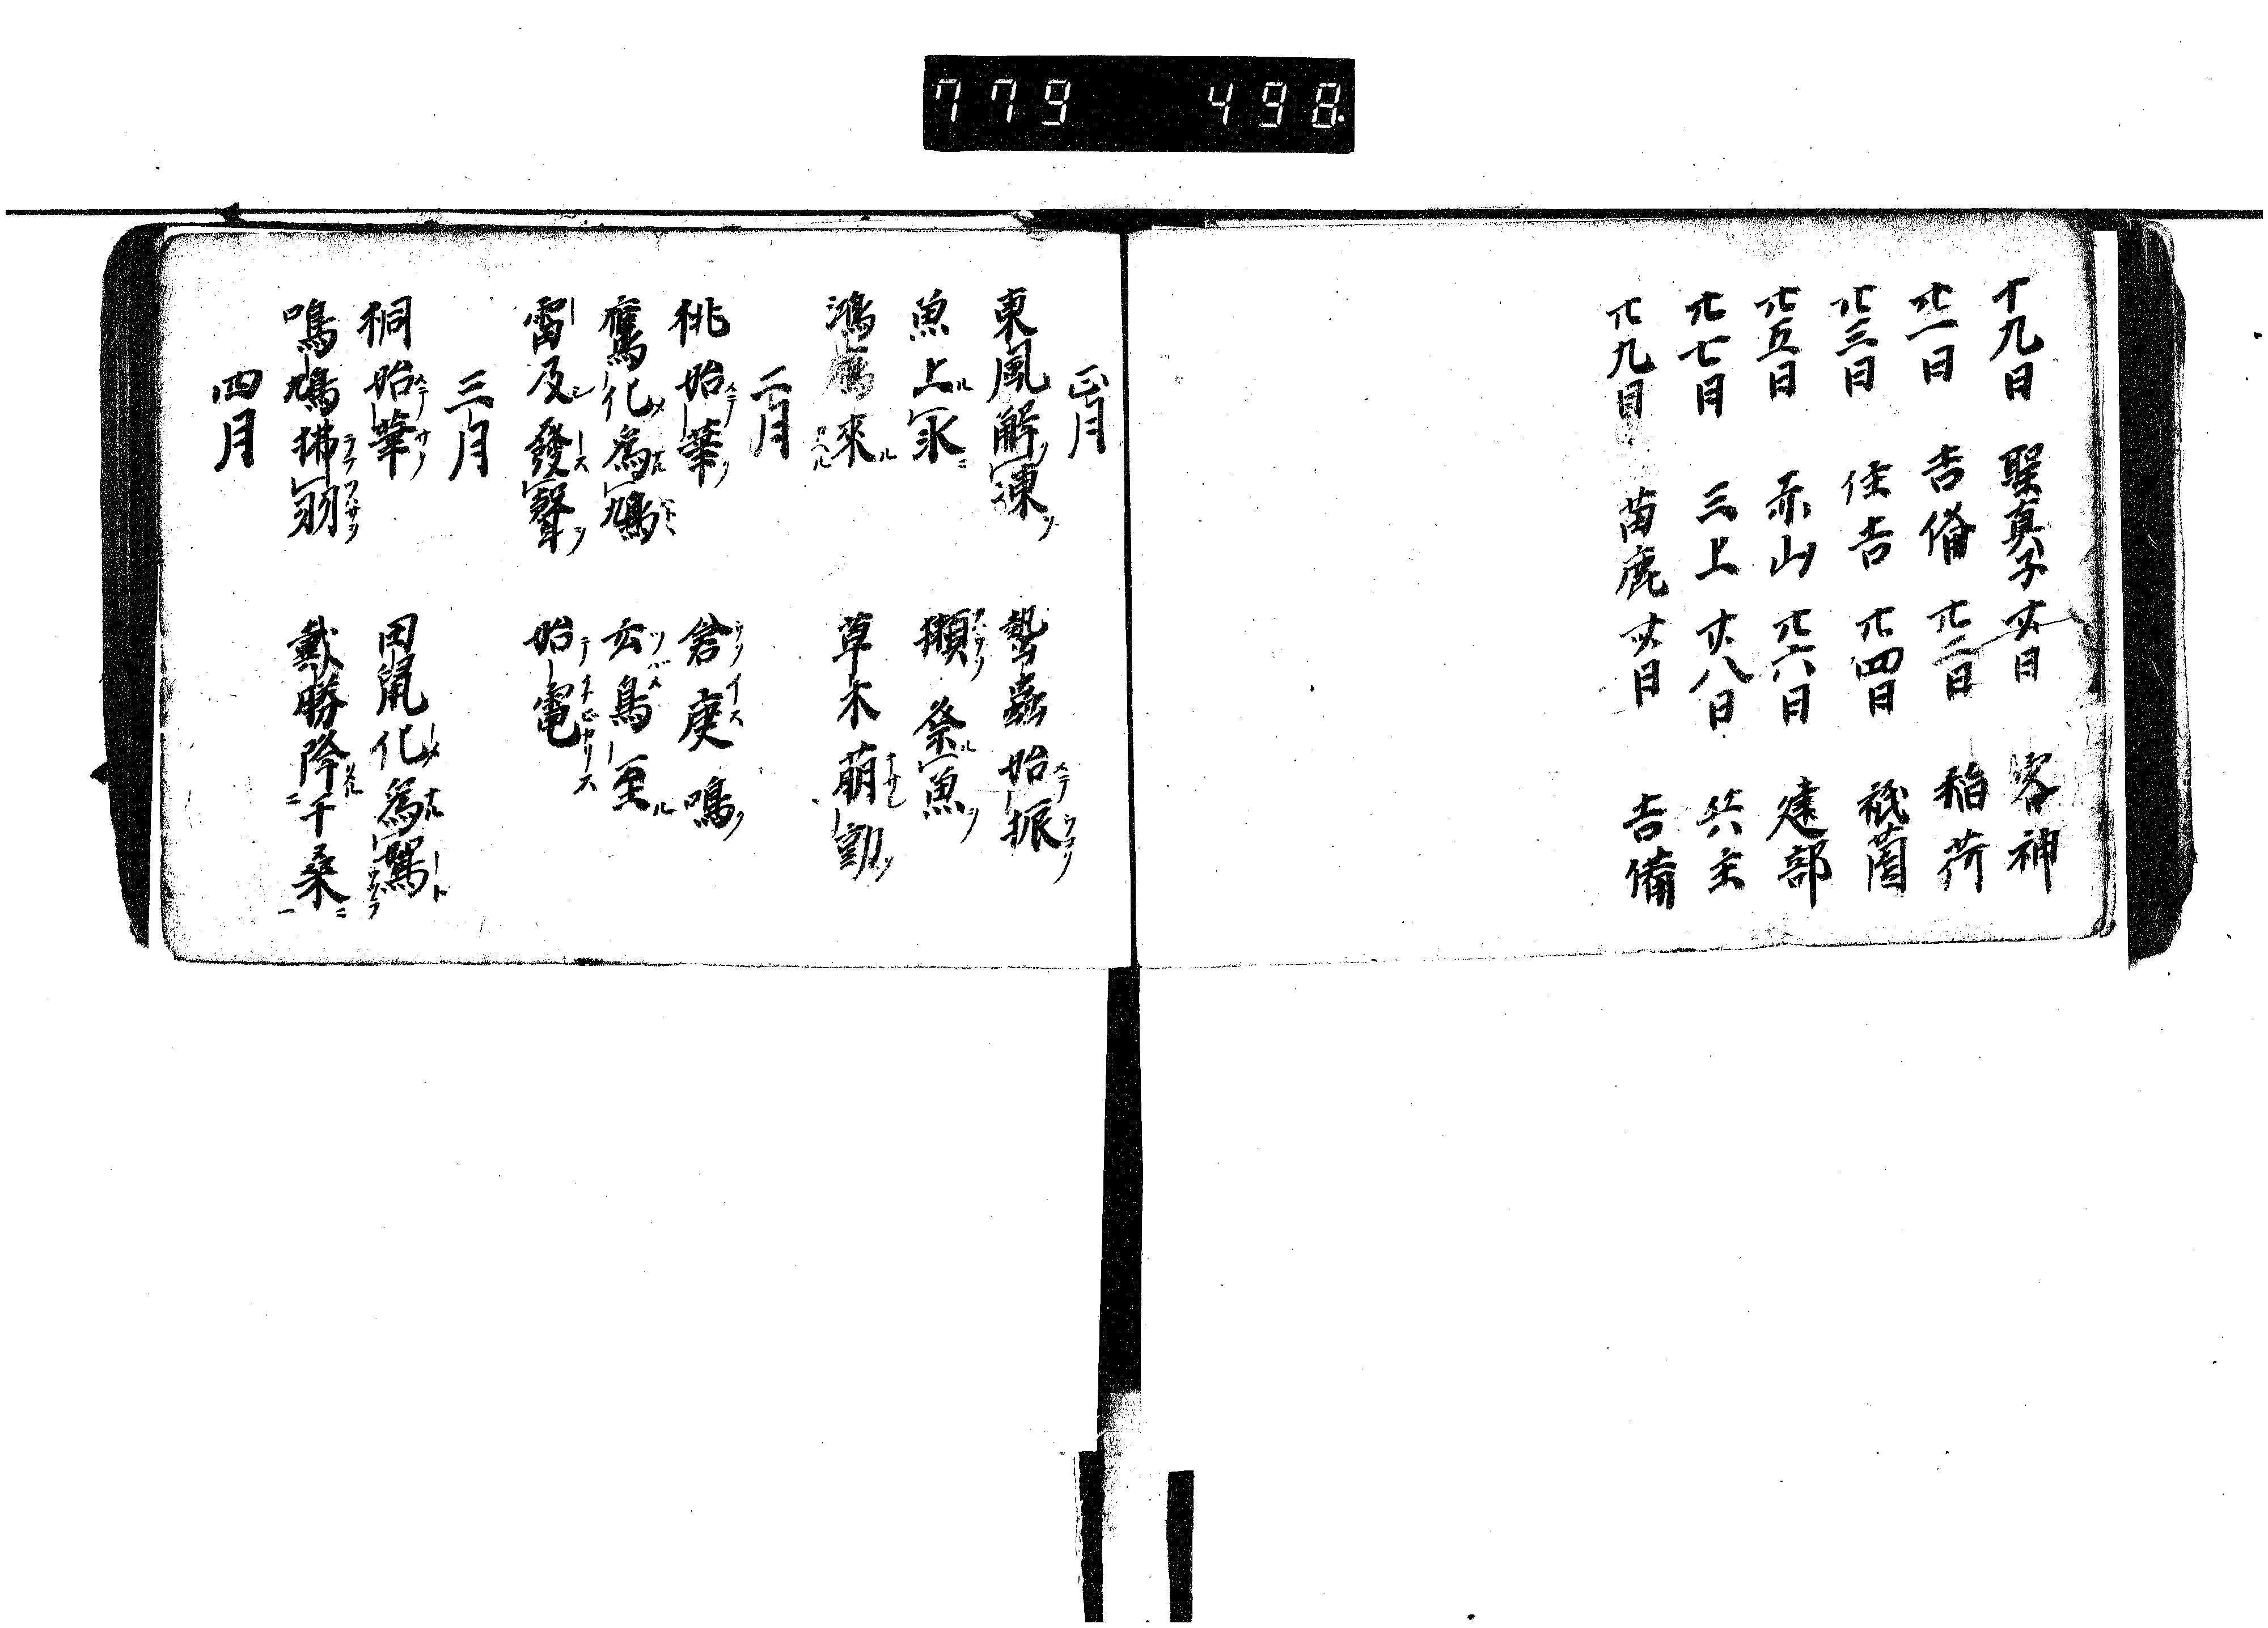 779 498
十九日 聖真子 廿日 客神
廿一日 吉備 廿二日 稲荷
廿三日 住吉 廿四日 祇薗
廿五日 赤山 廿六日 建部
廿七日 三上 廿八日 兵主
廿九日 苗鹿 卅日 吉備
正月
東風解凍 蟄蟲始振
魚上氷 獺祭魚
鴻鴈來 草木萌動
二月
桃始華 倉庚鳴
鷹化為鳩 玄鳥至
雷乃發聲 始電
三月
桐始華 田鼠化為鴽
鳴鳩拂羽 戴勝降于桑
四月